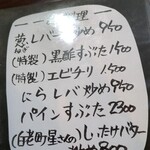 料理
葱レバー炒め 950
ねぎ
(特製)黒酢すぶた 1500
(特製)エビチリ 1,500
にらレバ炒め 950
パインすぶた 2300
町屋さん)しいたけバター
炒め 800